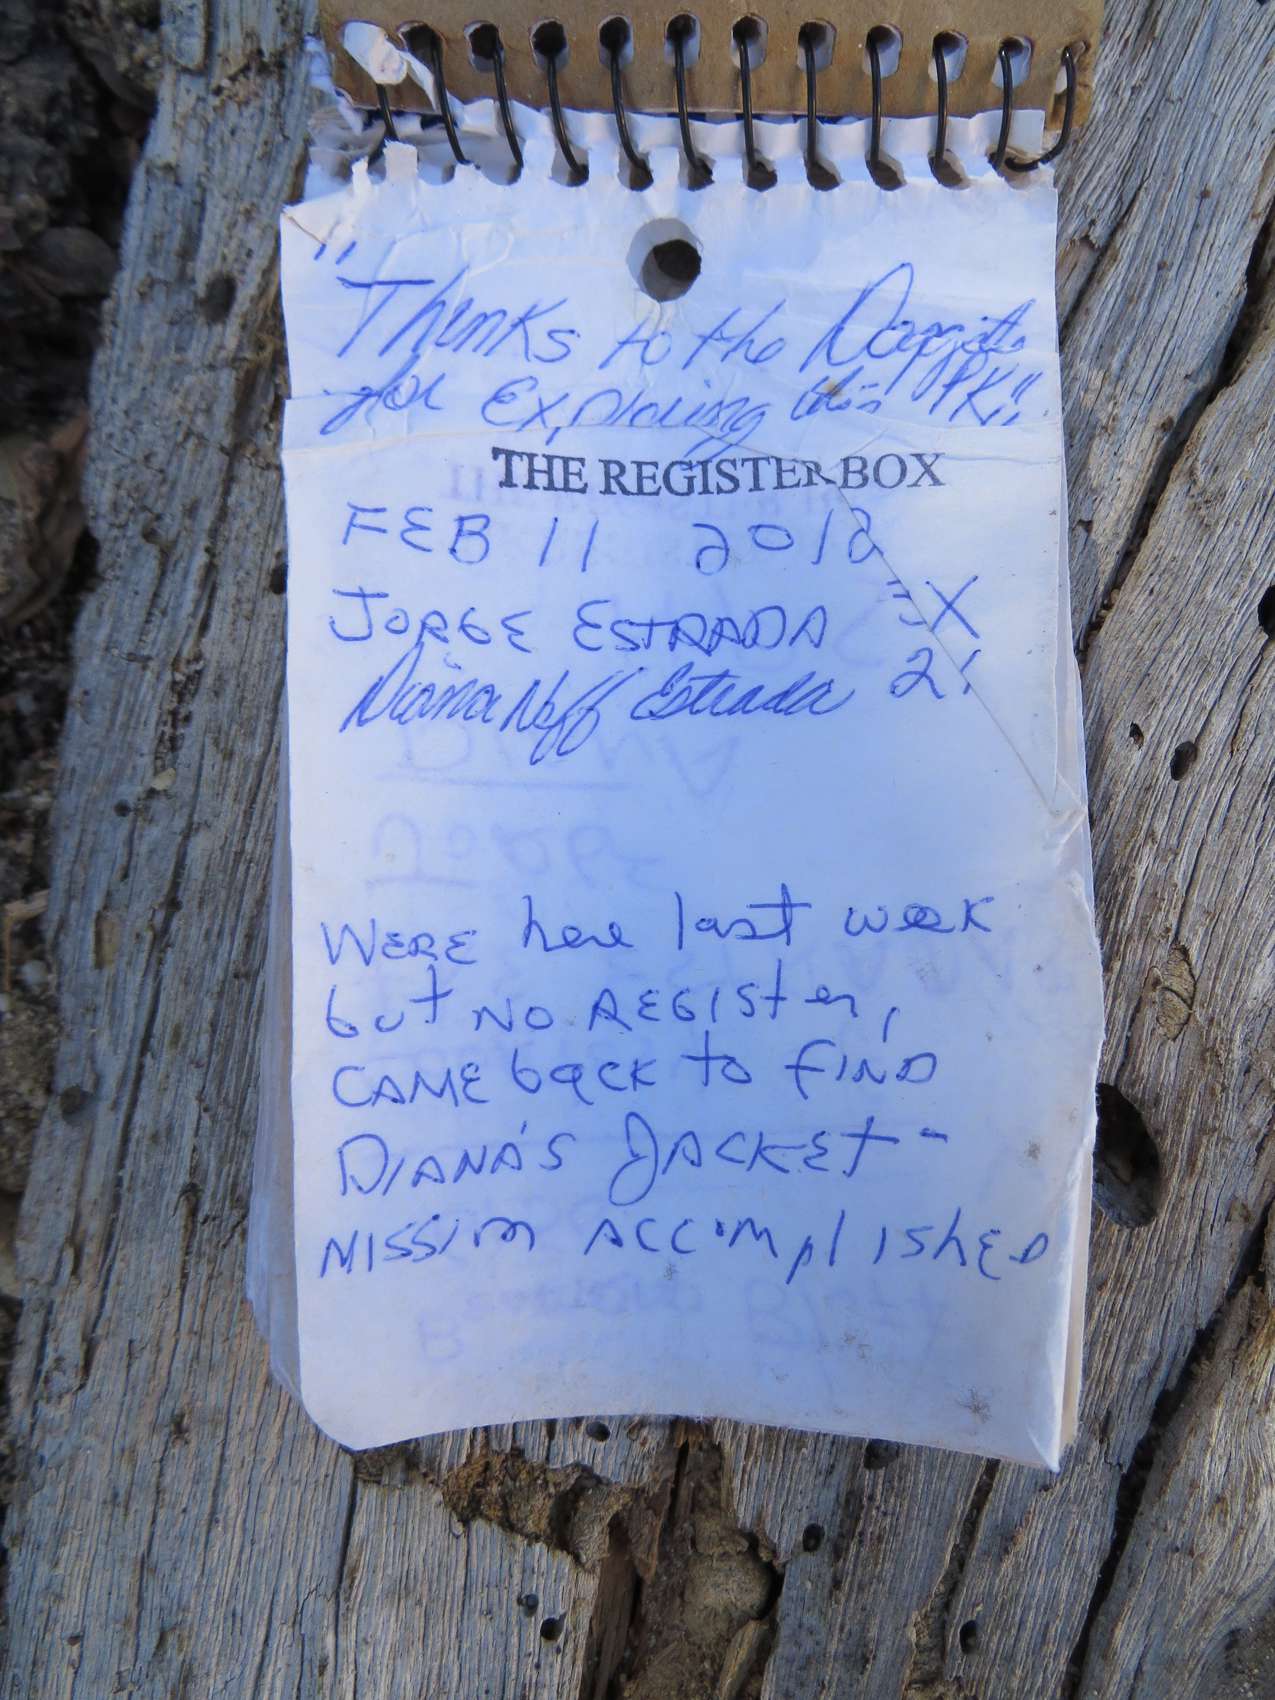 "Thanks to the
for Exploring this PK."
THE REGISTER BOX
FEB 11 2012
JORGE ESTRADA
Diana Neff Estrada
WERE here last week
but NO REGISter,
CAME back to FIND
DIANA'S JACKET -
MISSION ACCOMplishED